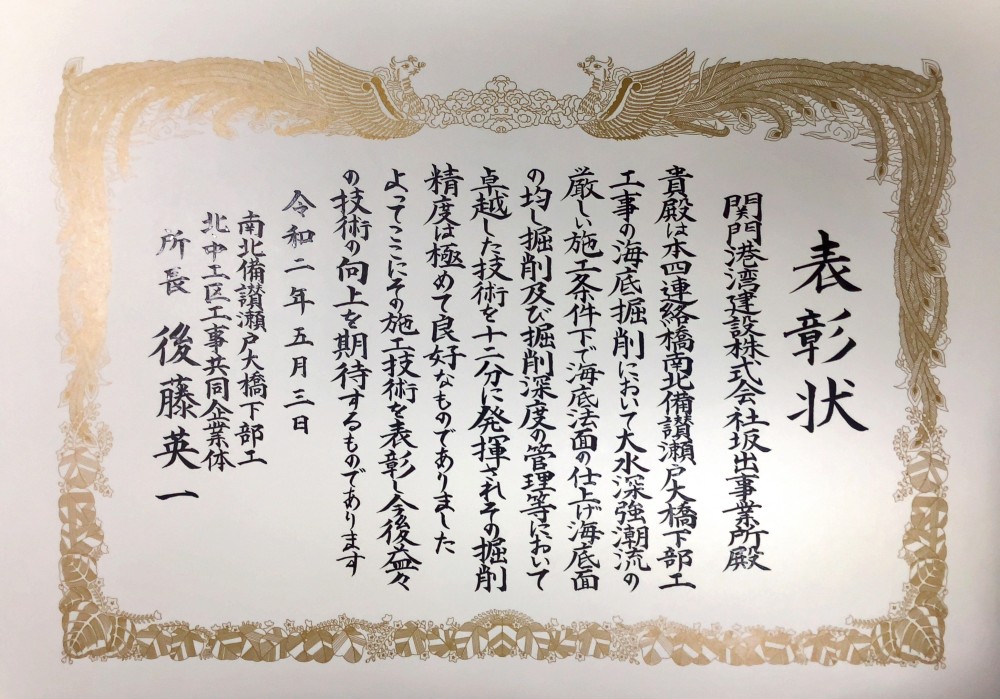 表彰状
関門港湾建設株式会社坂出事業所殿
貴殿は本四連絡橋南北備讃瀬戸大橋下部工
工事の海底掘削において大水深強潮流の
厳しい施工条件下で海底法面の仕上げ海底面
の均し掘削及び掘削深度の管理等において
卓越した技術を十二分に発揮されその掘削
精度は極めて良好なものでありました
よってここにその施工技術を表彰し今後益々
の技術の向上を期待するものであります
令和二年五月三日
南北備讃瀬戸大橋下部工
北中工区工事共同企業体
所長 後藤英一